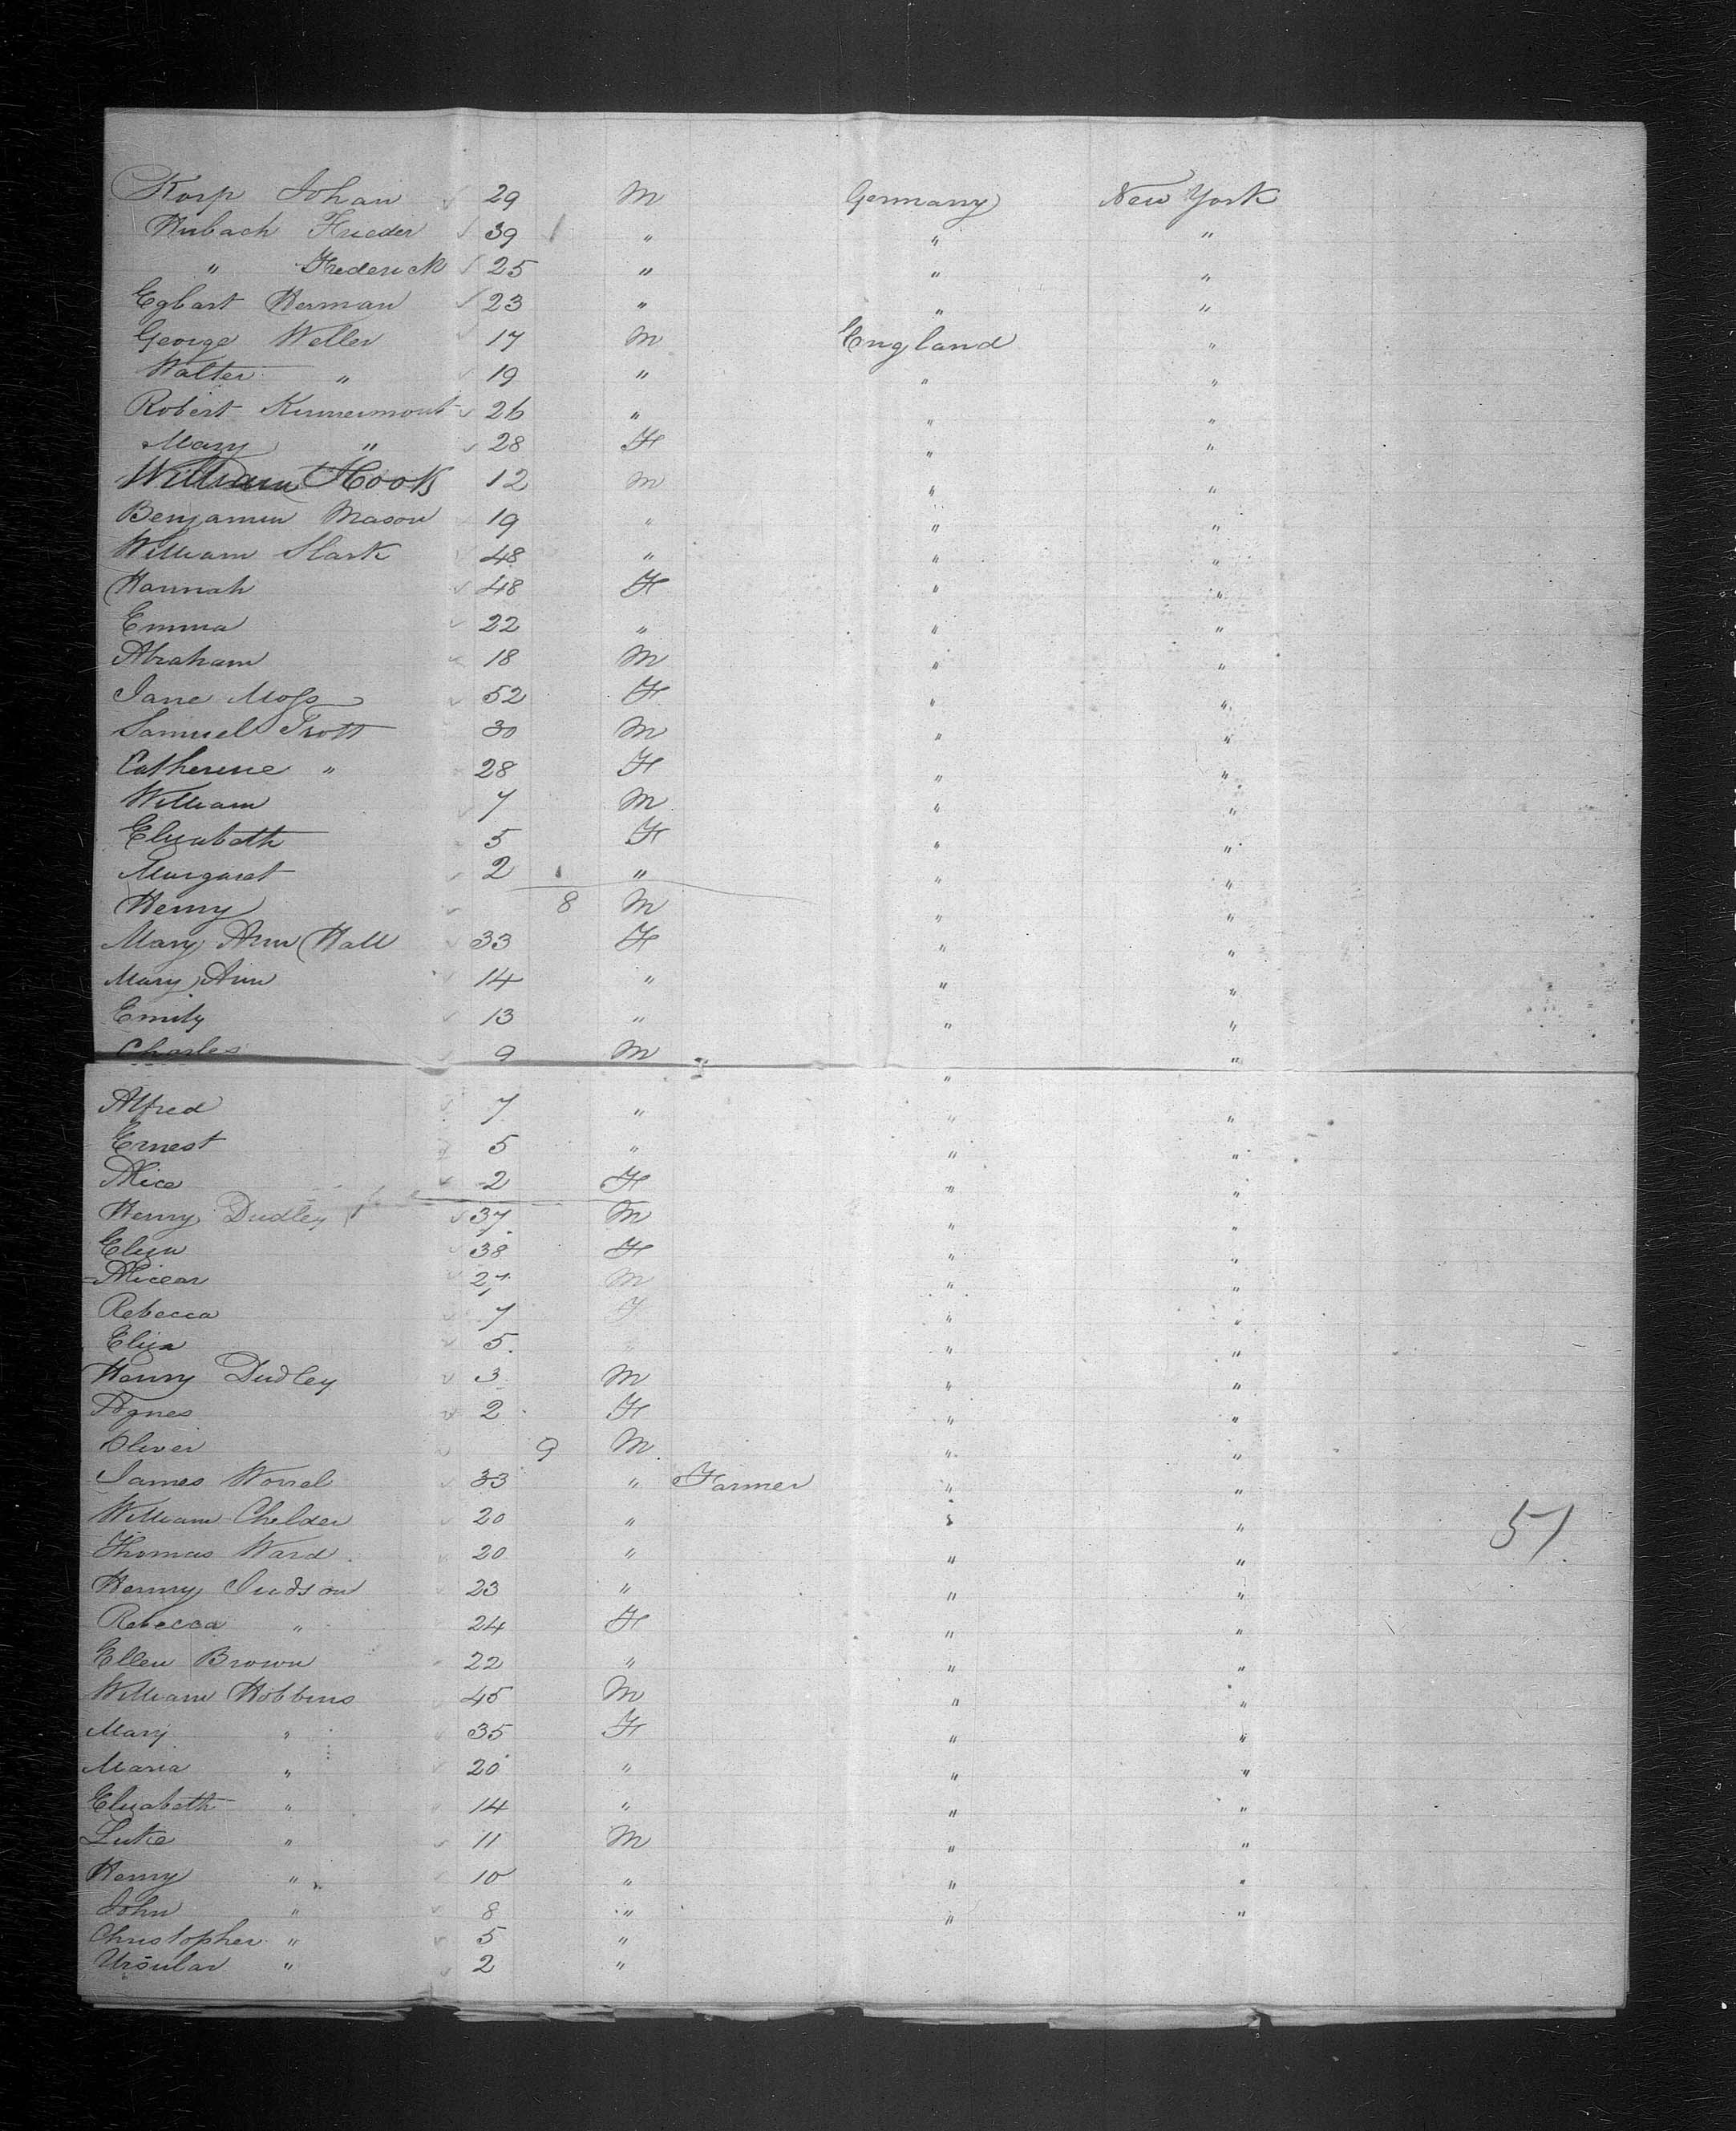 Korp Johan 29 M Germany New York
Hubach Frieder 39 " " "
" Frederick 25 " " "
Egbart Herman 23 " " "
George Weller 17 M England "
Walter " 19 " " "
Robert Kinnermont 26 " " "
Mary " 28 F " "
William Hook 12 M " "
Benjamin Mason 19 " " "
William Slark 48 " " "
Hannah 48 F " "
Emma 22 " " "
Abraham 18 M " "
Jane Moss 52 F " "
Samuel Trott 30 M " "
Catherine " 28 F " "
William 7 M " "
Elizabeth 5 F " "
Margaret 2 " " "
Henry 8 M " "
Mary Ann Hall 33 F " "
Mary Ann 14 " " "
Emily 13 " " "
Charles 9 M " "
Alfred 7 " " "
Ernest 5 " " "
Alice 2 F " "
Henry Dudley 37 M " "
Eliza 38 F " "
M " "
Rebecca 7 F " "
Eliza 5 " " "
Henry Dudley 3 M " "
Agnes 2 F " "
Oliver 9 M " "
James Worral 33 " Farmer " "
William Chelder 20 " " "
51
Thomas Ward 20 " " "
Henry Judson 23 " " "
Rebecca " 24 F " "
Ellen Brown 22 " " "
William Hobbins 45 M " "
Mary " 35 F " "
Maria " 20 " " "
Elizabeth " 14 " " "
Luke " 11 M " "
Henry " 10 " " "
John " 8 " " "
Christopher " 5 "
Ursular " 2 "